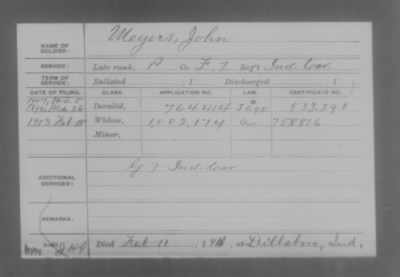 NAME OF SOLDIER: Meyers, John
SERVICE: Late rank, P Co. F. 7 Reg't Ind. Cav.
TERM OF SERVICE: Enlisted , 1 Discharged , 1
DATE OF FILING. CLASS. APPLICATION NO. LAW. CERTIFICATE NO.
Invalid, 764,414 533,291
1913 Feb Widow, 1,002,174 a 758816
Minor,
ADDITIONAL SERVICES: G 7 Ind. Cav
REMARKS:
Died Feb 11, 191 , at Dillsboro, Ind,